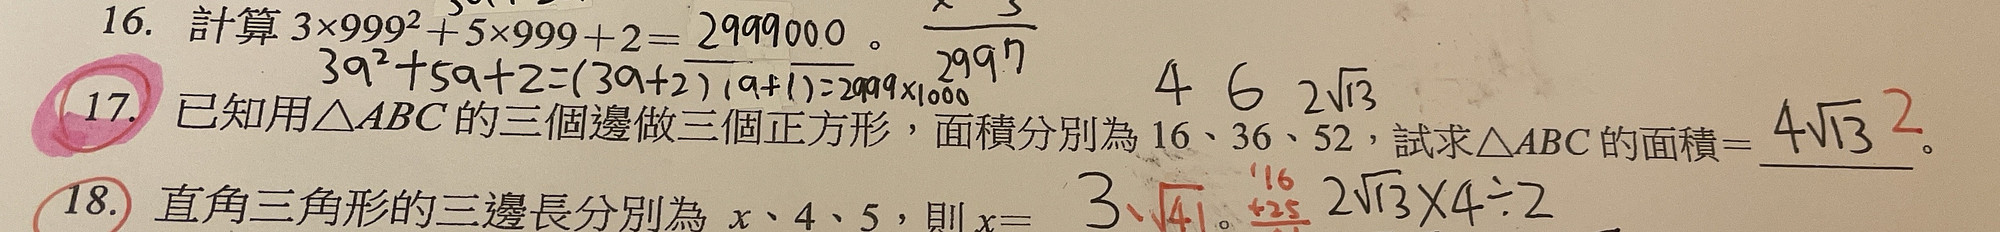 16. 計算 3×999²+5×999+2= 2999000 。
2997
3a²+5a+2=(3a+2)(a+1)=2999×1000
4 6 2√13
17. 已知用△ABC的三個邊做三個正方形，面積分別為 16、36、52，試求△ABC的面積= 4√13 2 。
18. 直角三角形的三邊長分別為 x、4、5，則 x= 3、√41 。
16
+25
2√13×4÷2